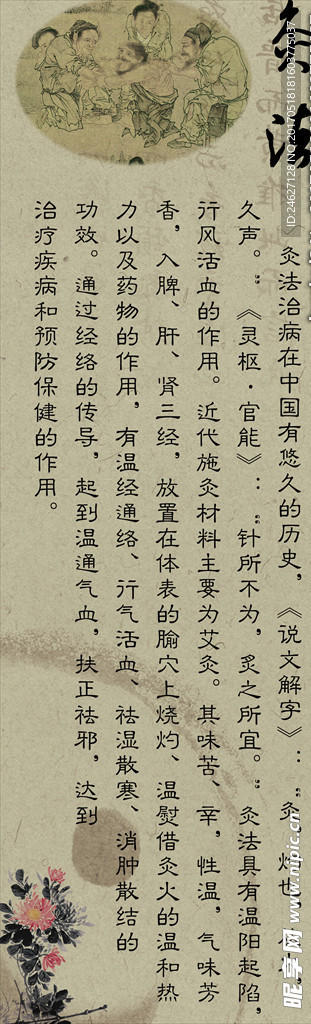 灸法
灸法治病在中国有悠久的历史，《说文解字》：“灸，灼也，
久声。”《灵枢·官能》：“针所不为，炙之所宜。”灸法具有温阳起陷，
行风活血的作用。近代施灸材料主要为艾灸。其味苦、辛，性温，气味芳
香，入脾、肝、肾三经，放置在体表的腧穴上烧灼、温熨借灸火的温和热
力以及药物的作用，有温经通络、行气活血、祛湿散寒、消肿散结的
功效。通过经络的传导，起到温通气血，扶正祛邪，达到
治疗疾病和预防保健的作用。
ID:24627128 NO:20170518181603775037
昵享网 www.nipic.cn